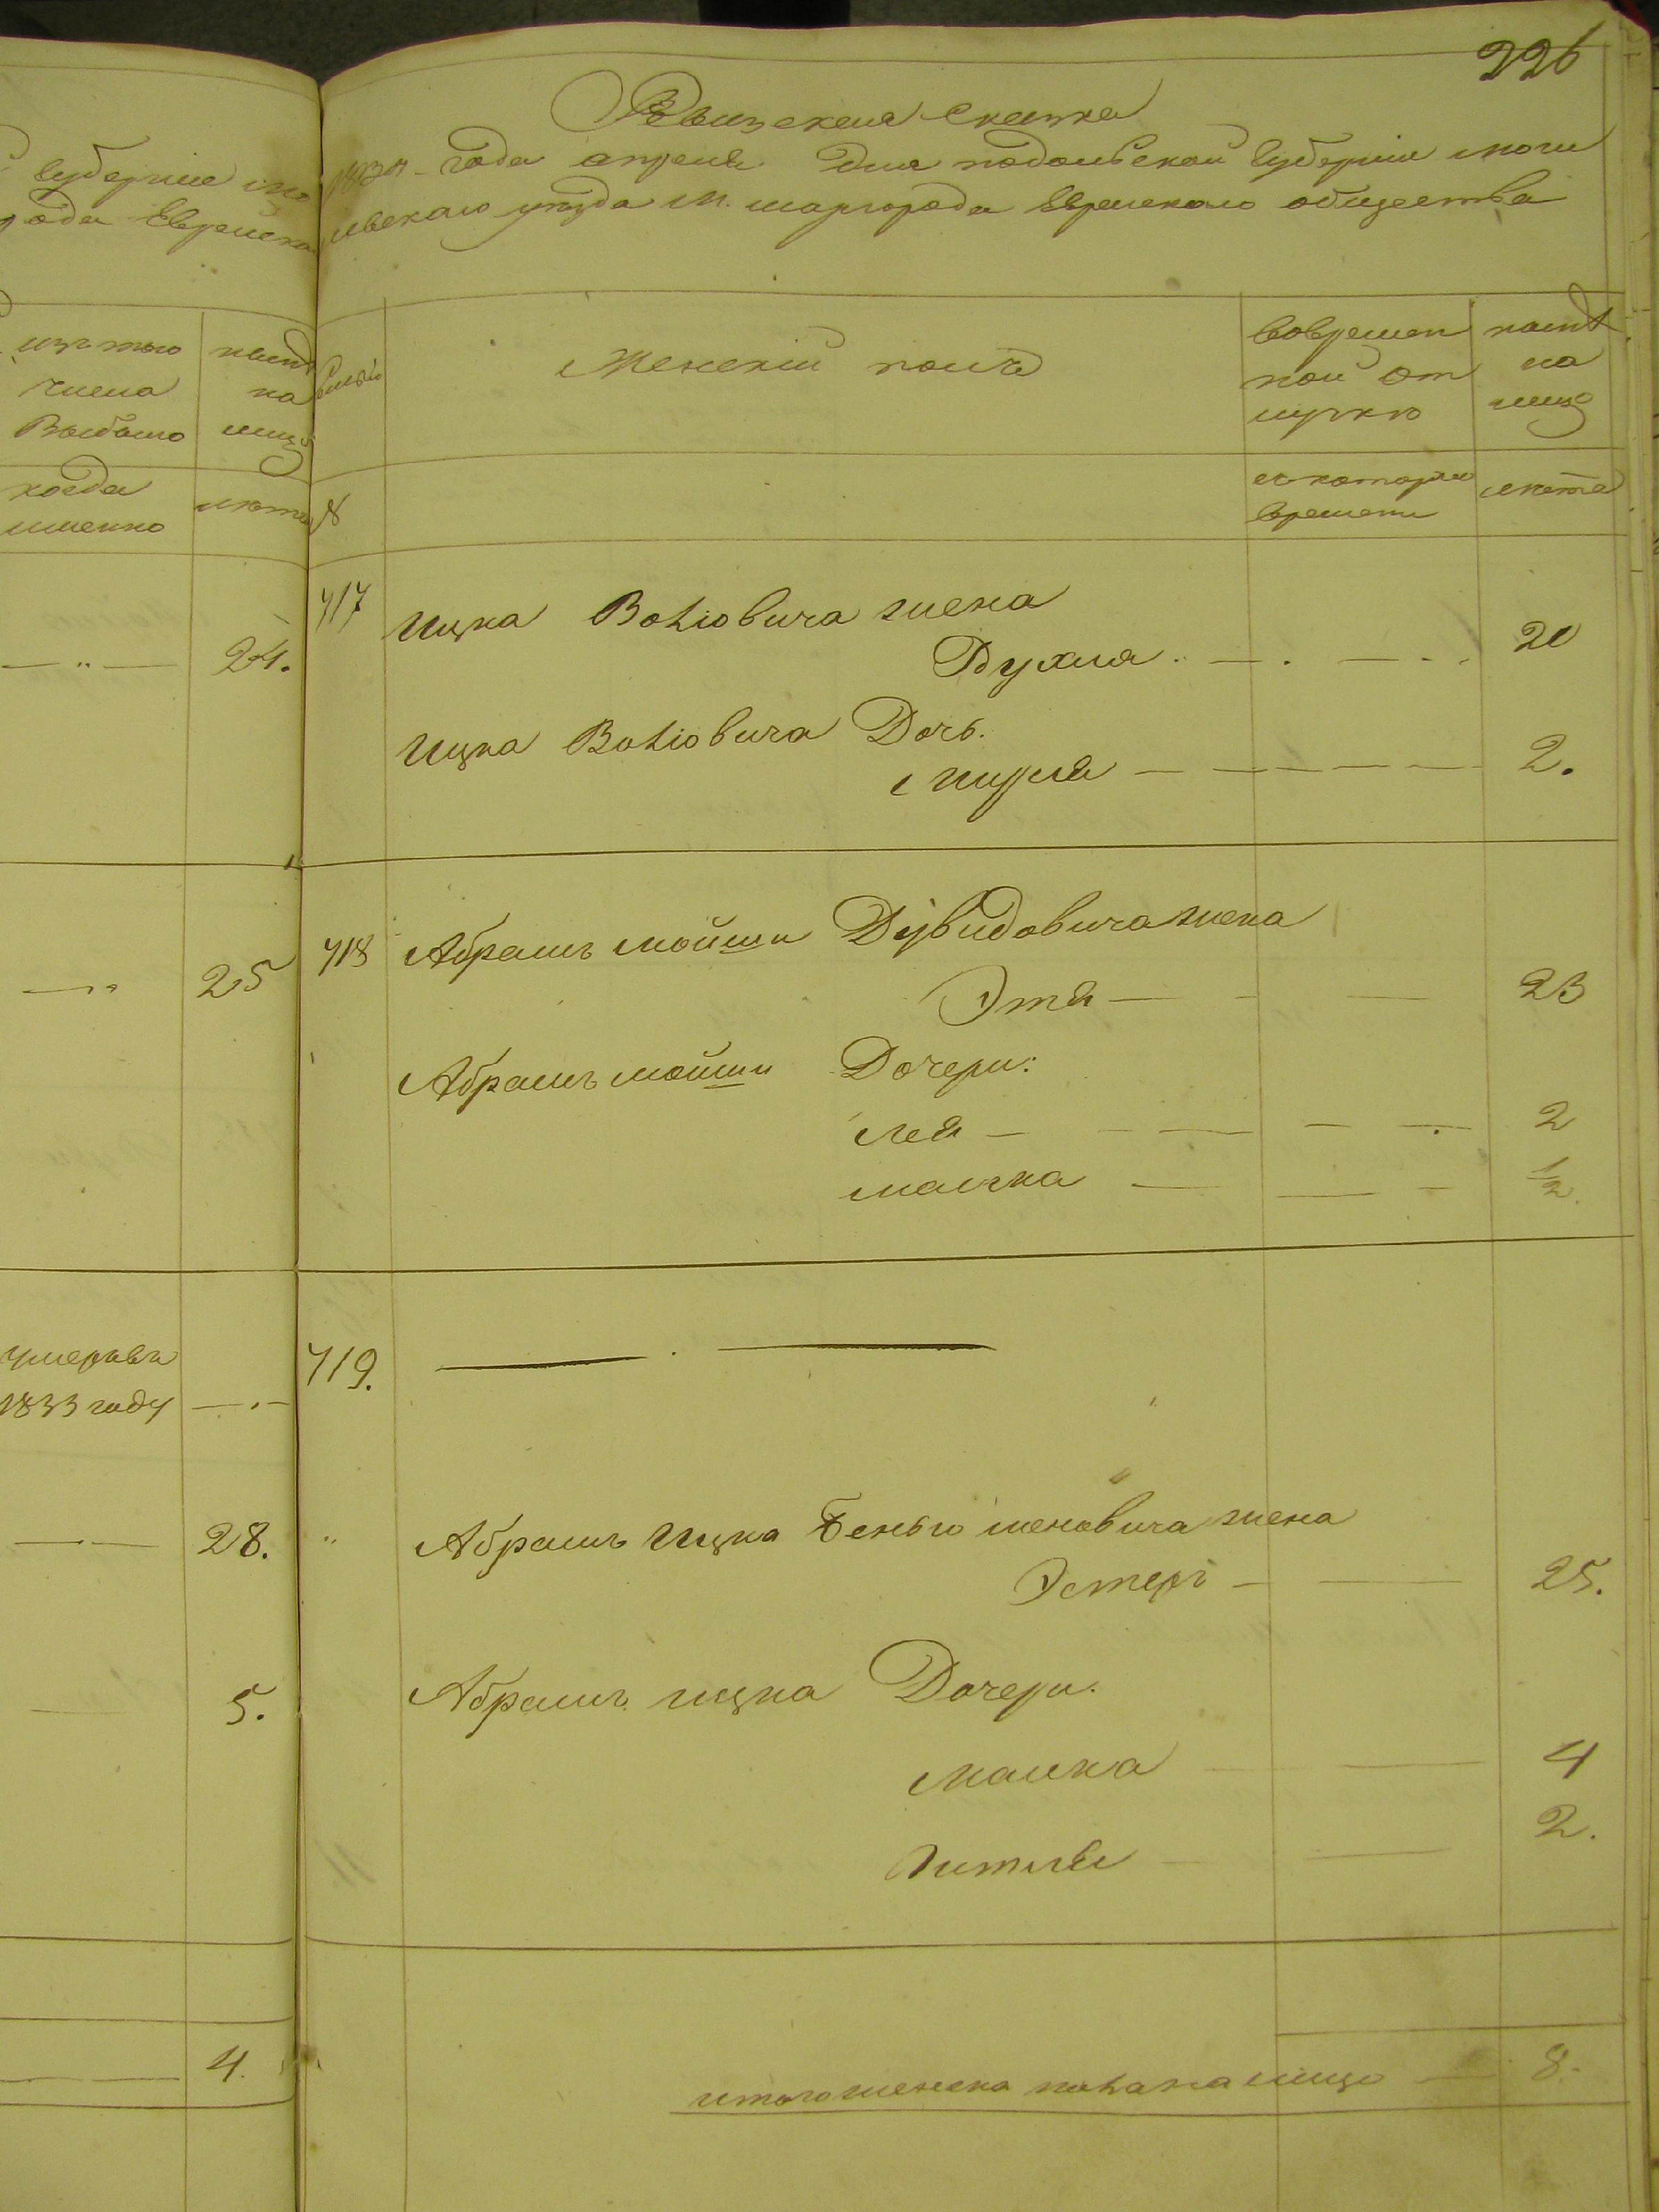 226
Ревизская Сказка
1834 года апреля дня подольской Губернии моги
левского уезда м. шаргорода Еврейского общества
Губернии мо
рода Еврейска
изъ того
числа
Выбыло
ныне
на
лицо
когда
именно
лета
Семьи
Женский полъ
Вовремен
ной от
лучке
ныне
на
лицо
№
съ котораго
времени
лета
24.
717
Ицка Волiовича жена
Рухля 20
Ицка Волiовича Дочь.
2.
25
718
Абрамъ мойши Дувидовича жена
Этя 23
Абрамъ мойши Дочери:
лея 2
малка 1/2
умеръ въ
1833 году
719.
28.
Абрамъ Ицка Беньюменовича жена
Эстеръ 25.
5.
Абрамъ ицка Дочери.
малка 4
2.
4.
итого женска пола на лицо 8.